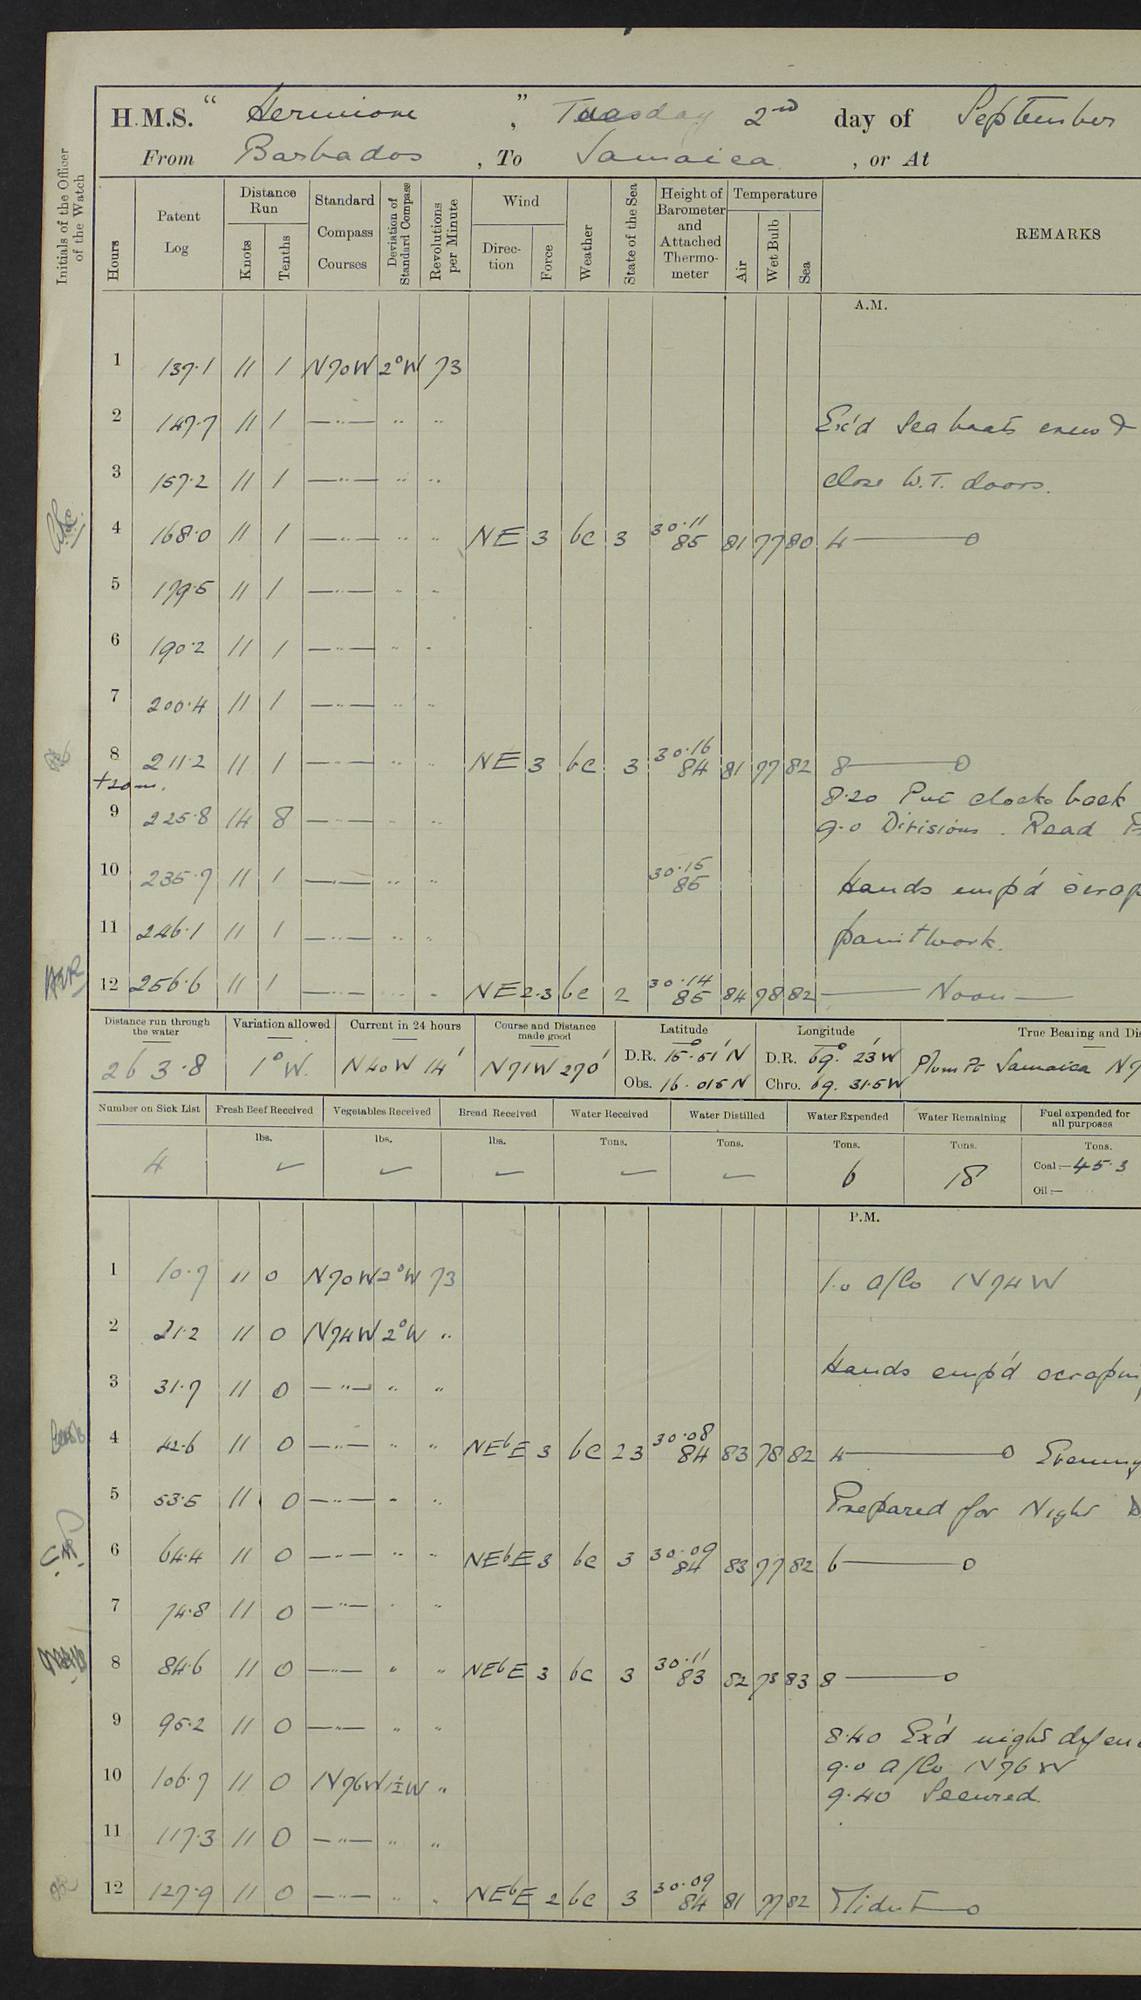 H.M.S. " Hermione ", Tuesday 2nd day of September
From Barbados, To Jamaica, or At
Initials of the Officer of the Watch
Hours Patent Log Distance Run Knots Tenths Standard Compass Courses Deviation of Standard Compass Revolutions per Minute Wind Direction Force Weather State of the Sea Height of Barometer and Attached Thermometer Temperature Air Wet Bulb Sea REMARKS
A.M.
1 137.1 11 1 N70W 2°W 73
2 147.7 11 1 —"— " " Ex'd Sea boats crew &
3 157.2 11 1 —"— " " close W.T. doors.
4 168.0 11 1 —"— " " NE 3 bc 3 30.11 85 81 77 80 4 — 0
5 179.5 11 1 —"— " "
6 190.2 11 1 —"— " "
7 200.4 11 1 —"— " "
8 211.2 11 1 —"— " " NE 3 bc 3 30.16 84 81 77 82 8 — 0
+20m. 8.20 Put clocks back
9 225.8 14 8 —"— " " 9.0 Divisions. Read
10 235.7 11 1 —"— " " 30.15 85 Hands emp'd scrap
11 246.1 11 1 —"— " " paintwork.
12 256.6 11 1 —"— " " NE 2.3 bc 2 30.14 85 84 78 82 — Noon —
Distance run through the water Variation allowed Current in 24 hours Course and Distance made good Latitude Longitude True Bearing and Dis
263.8 1°W. N40W 14' N71W 270' D.R. 15°.51'N D.R. 69° 23'W Plum Pt Jamaica N7
Obs. 16.015N Chro. 69. 31.5W
Number on Sick List Fresh Beef Received Vegetables Received Bread Received Water Received Water Distilled Water Expended Water Remaining Fuel expended for all purposes
lbs. lbs. lbs. Tons. Tons. Tons. Tons. Tons.
4 ✓ ✓ ✓ ✓ ✓ 6 18 Coal:—45.3
Oil:—
P.M.
1 10.7 11 0 N70W 2°W 73 1.0 A/Co N74W
2 21.2 11 0 N74W 2°W "
3 31.7 11 0 —"— " " Hands emp'd scrapin
4 42.6 11 0 —"— " " NEbE 3 bc 23 30.08 84 83 78 82 4 — 0 Evening
5 53.5 11 0 —"— " " Prepared for Night D
6 64.4 11 0 —"— " " NEbE 3 bc 3 30.09 84 83 77 82 6 — 0
7 74.8 11 0 —"— " "
8 84.6 11 0 —"— " " NEbE 3 bc 3 30.11 83 82 78 83 8 — 0
9 95.2 11 0 —"— " " 8.40 Ex'd night defen
10 106.7 11 0 N76W 1½W " 9.0 A/Co N76W
9.40 Secured.
11 117.3 11 0 —"— " "
12 127.9 11 0 —"— " " NEbE 2 bc 3 30.09 84 81 77 82 Midnt — 0